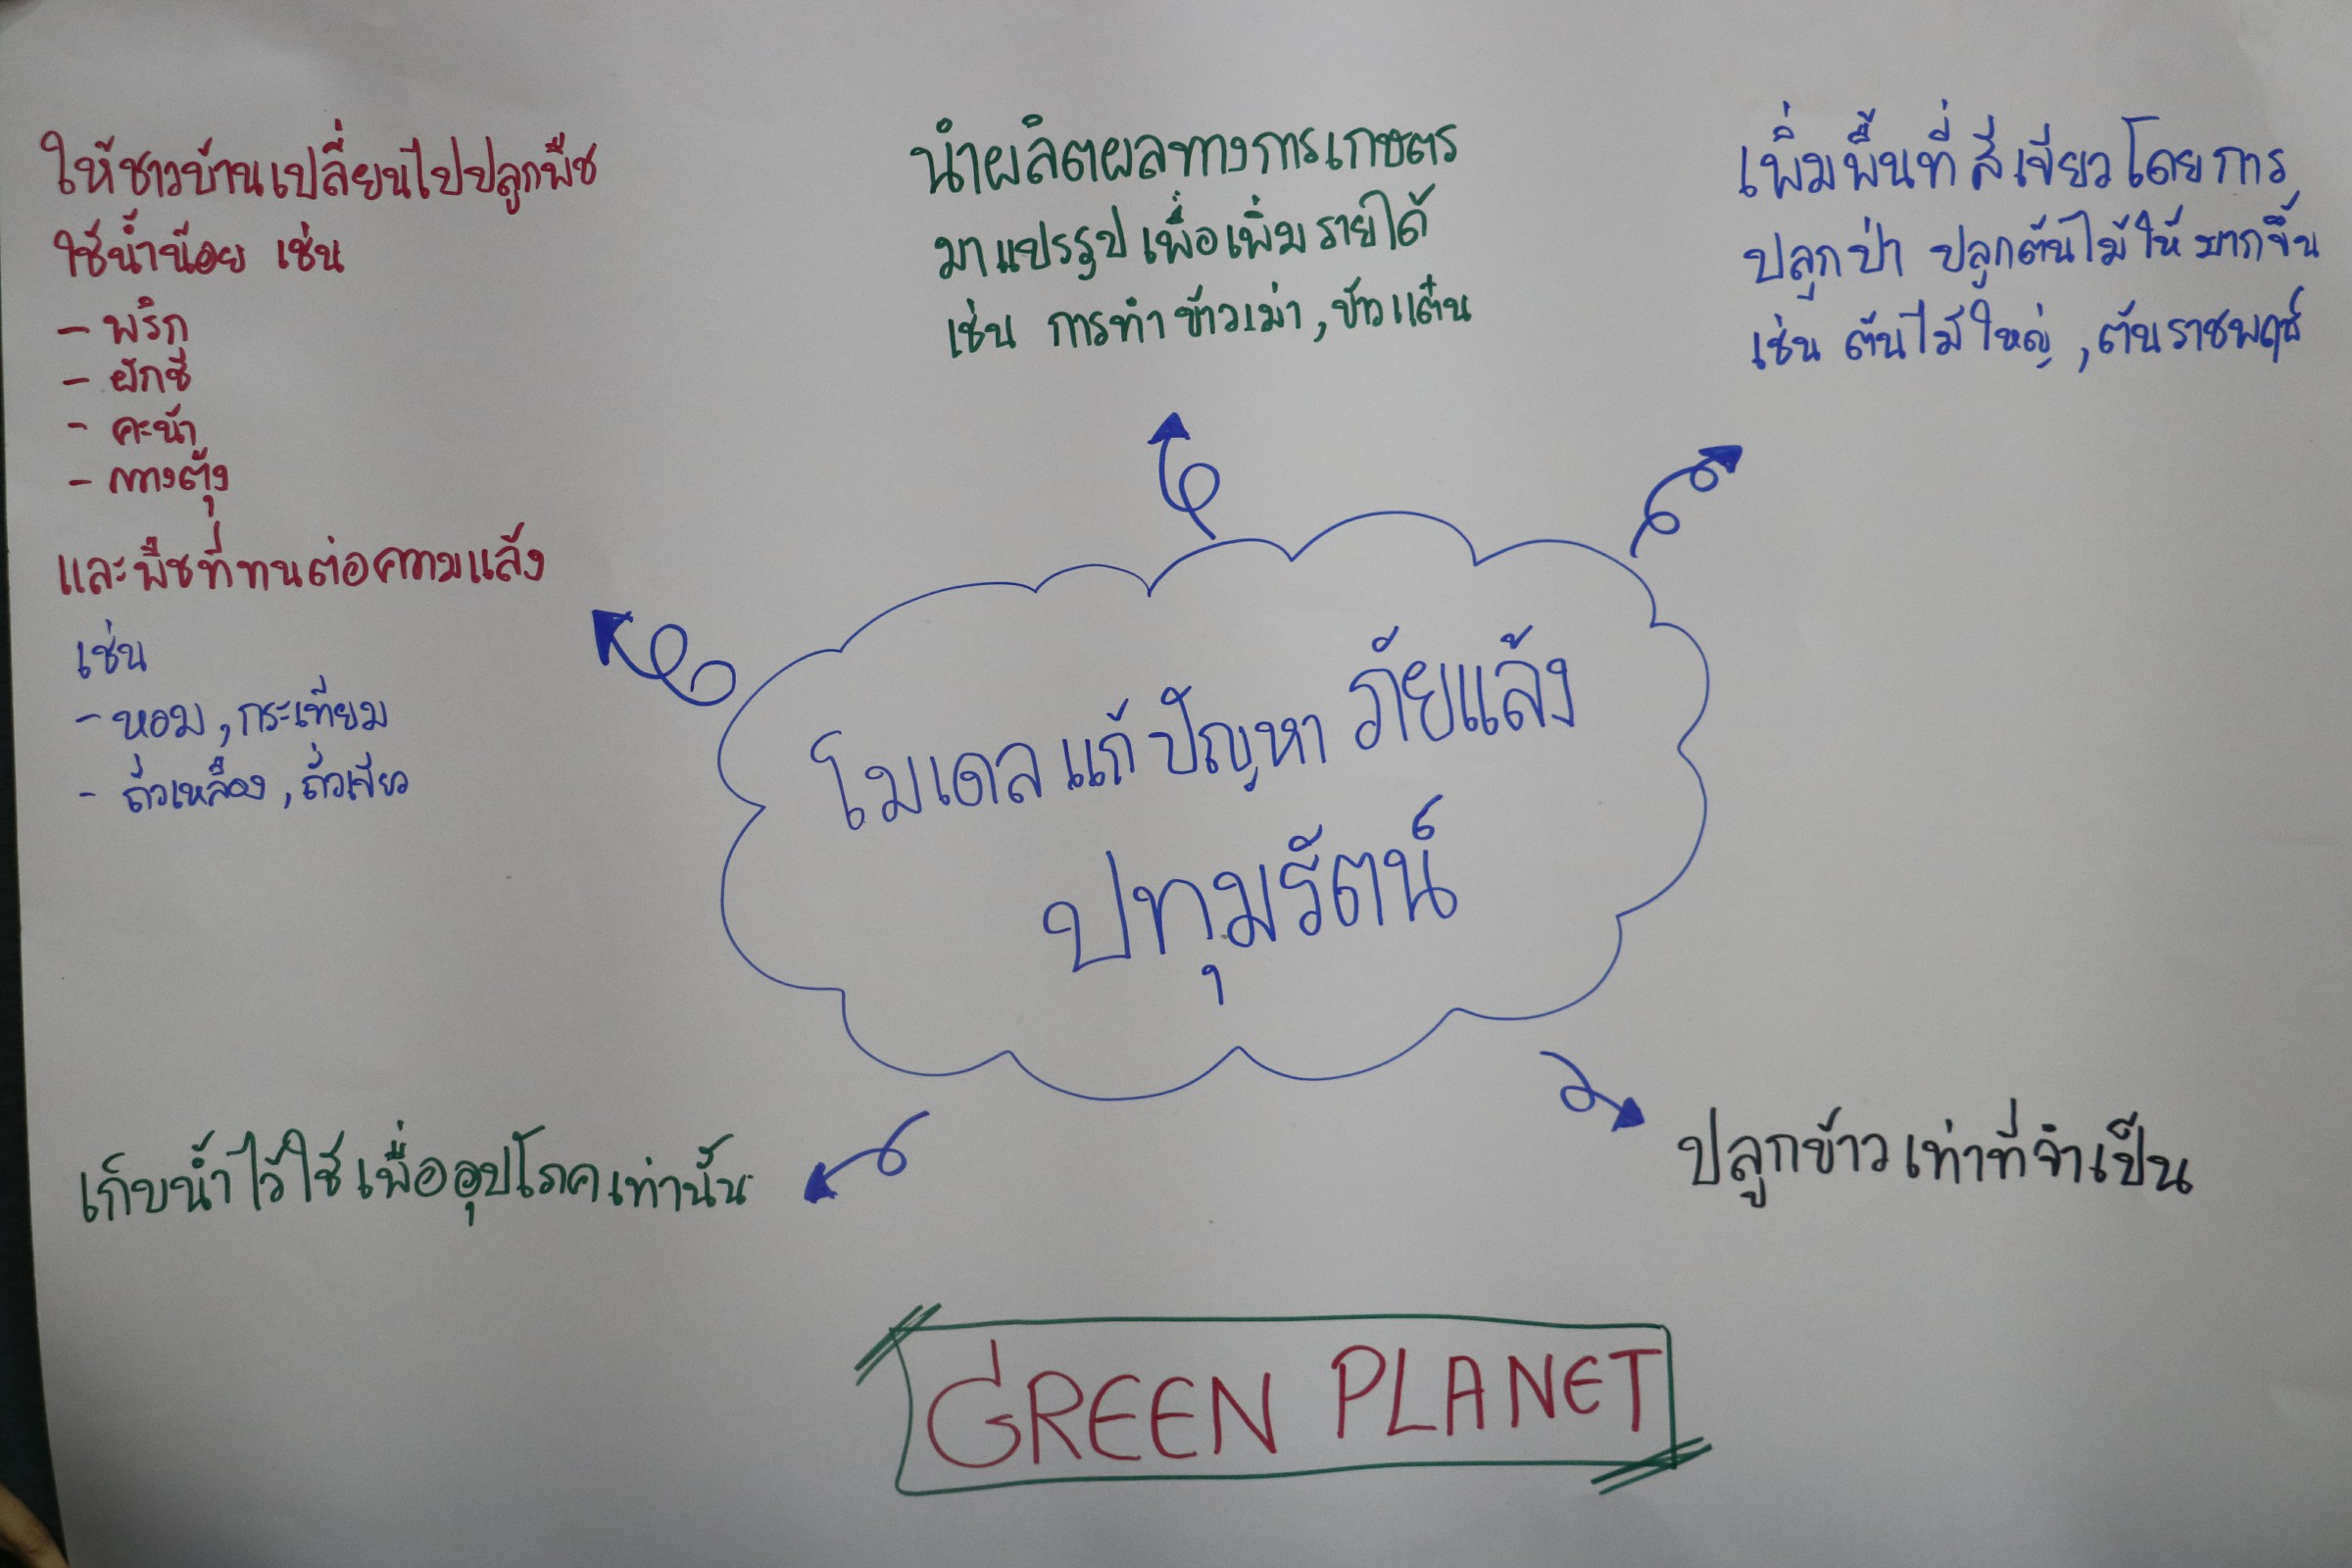 ให้ชาวบ้านเปลี่ยนไปปลูกพืช
ใช้น้ำน้อย เช่น
- พริก
- ผักชี
- คะน้า
- กวางตุ้ง
และพืชที่ทนต่อความแล้ง
เช่น
- หอม, กระเทียม
- ถั่วเหลือง, ถั่วเขียว
นำผลิตผลทางการเกษตร
มาแปรรูปเพื่อเพิ่มรายได้
เช่น การทำข้าวเม่า, ข้าวแต๋น
เพิ่มพื้นที่สีเขียวโดยการ
ปลูกป่า ปลูกต้นไม้ให้มากขึ้น
เช่น ต้นไม้ใหญ่, ต้นราชพฤกษ์
โมเดลแก้ปัญหาภัยแล้ง
ปทุมรัตน์
เก็บน้ำไว้ใช้เพื่ออุปโภคเท่านั้น
ปลูกข้าวเท่าที่จำเป็น
GREEN PLANET